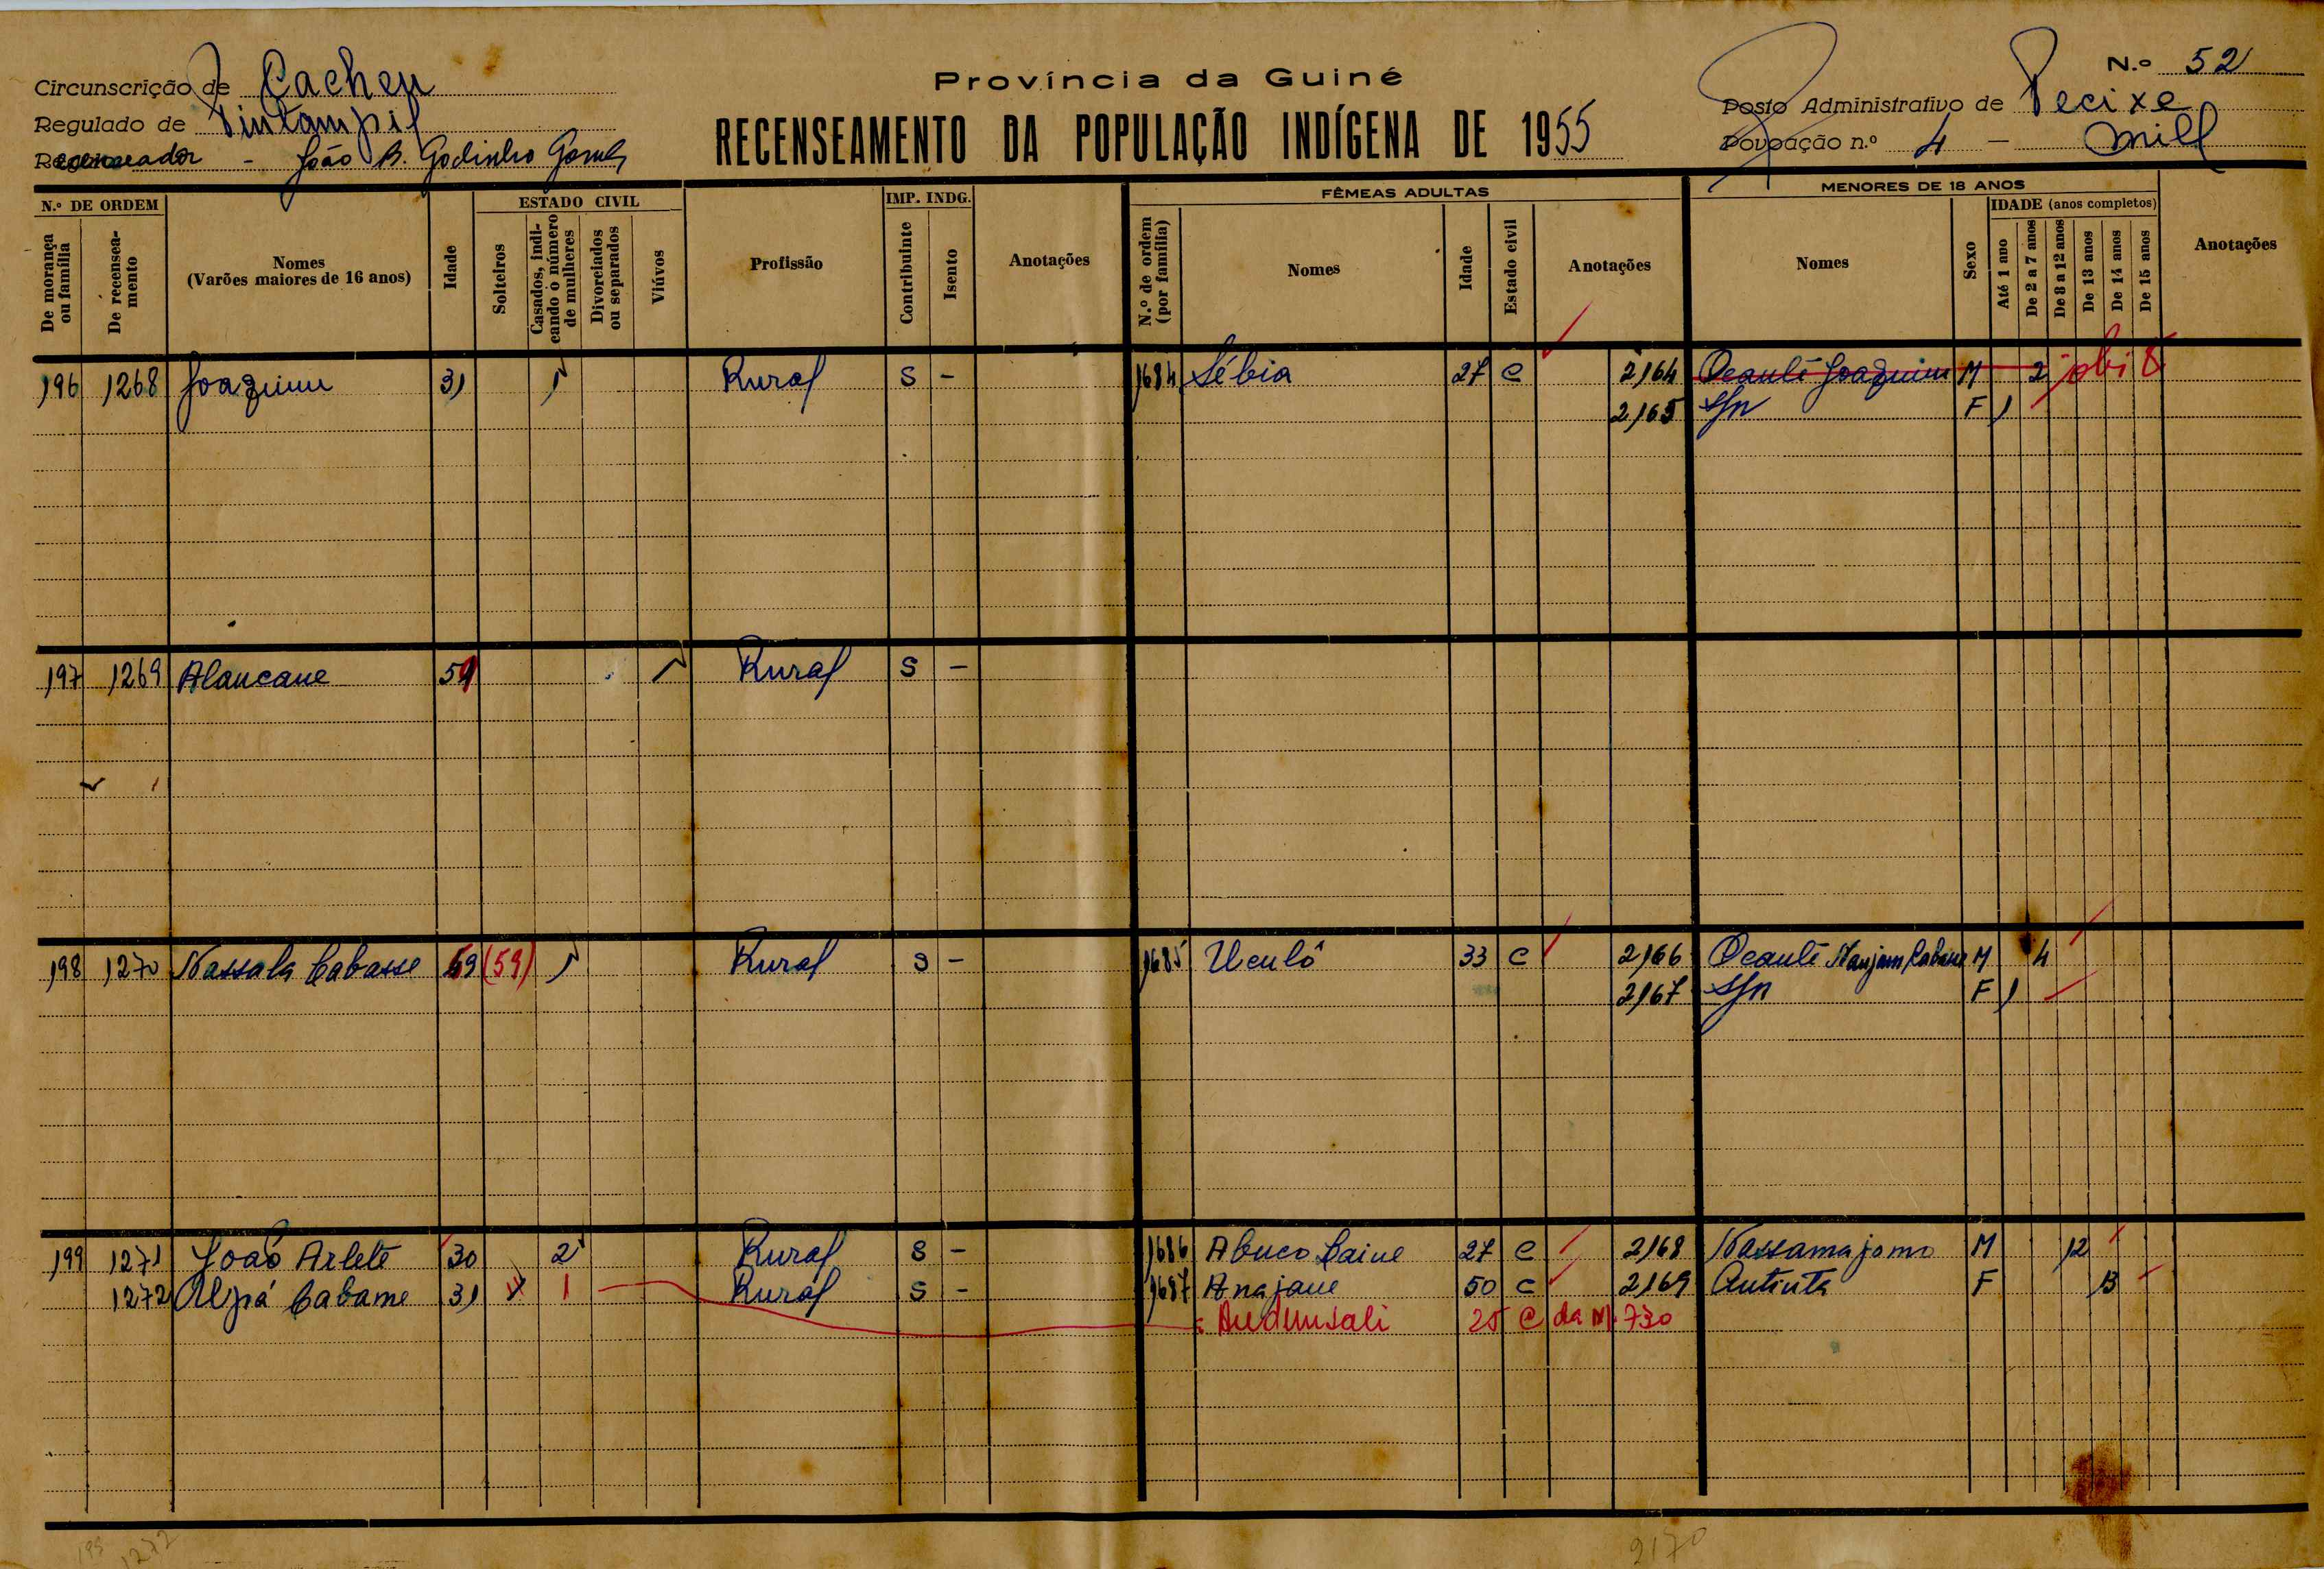 N.º 52
Província da Guiné
Circunscrição de Cacheu
Posto Administrativo de Pecixe
Regulado de Pintampil
RECENSEAMENTO DA POPULAÇÃO INDÍGENA DE 1955
Povoação n.º 4 - Mill
Recenseador - João B. Godinho Gomes
N.º DE ORDEM
De morança ou família
De recenseamento
Nomes
(Varões maiores de 16 anos)
Idade
ESTADO CIVIL
Solteiros
Casados, indicando o número de mulheres
Divorciados ou separados
Viúvos
Profissão
IMP. INDG.
Contribuinte
Isento
Anotações
FÊMEAS ADULTAS
N.º de ordem (por família)
Nomes
Idade
Estado civil
Anotações
MENORES DE 18 ANOS
Nomes
Sexo
IDADE (anos completos)
Até 1 ano
De 2 a 7 anos
De 8 a 12 anos
De 13 anos
De 14 anos
De 15 anos
Anotações
196 1268 Joaquim 31 1 Rural S - 1684 Sébia 27 C 2164 Ocaulé Joaquim M 2
2165 S/n F 1
197 1269 Alancane 59 Rural S -
198 1270 Nassala Cabasse 69 (59) 1 Rural S - 1685 Uculô 33 C 2166 Ocaulé Nanjam Cabasse M 4
2167 S/n F 1
199 1271 João Arleté 30 2 Rural S - 1686 Abuco Laine 27 C 2168 Nassamajomo M 12
1272 Alpá Cabame 31 1 Rural S - 1687 Anajane 50 C 2169 Antinta F 13
25 C da M. 730
199 1272 2170